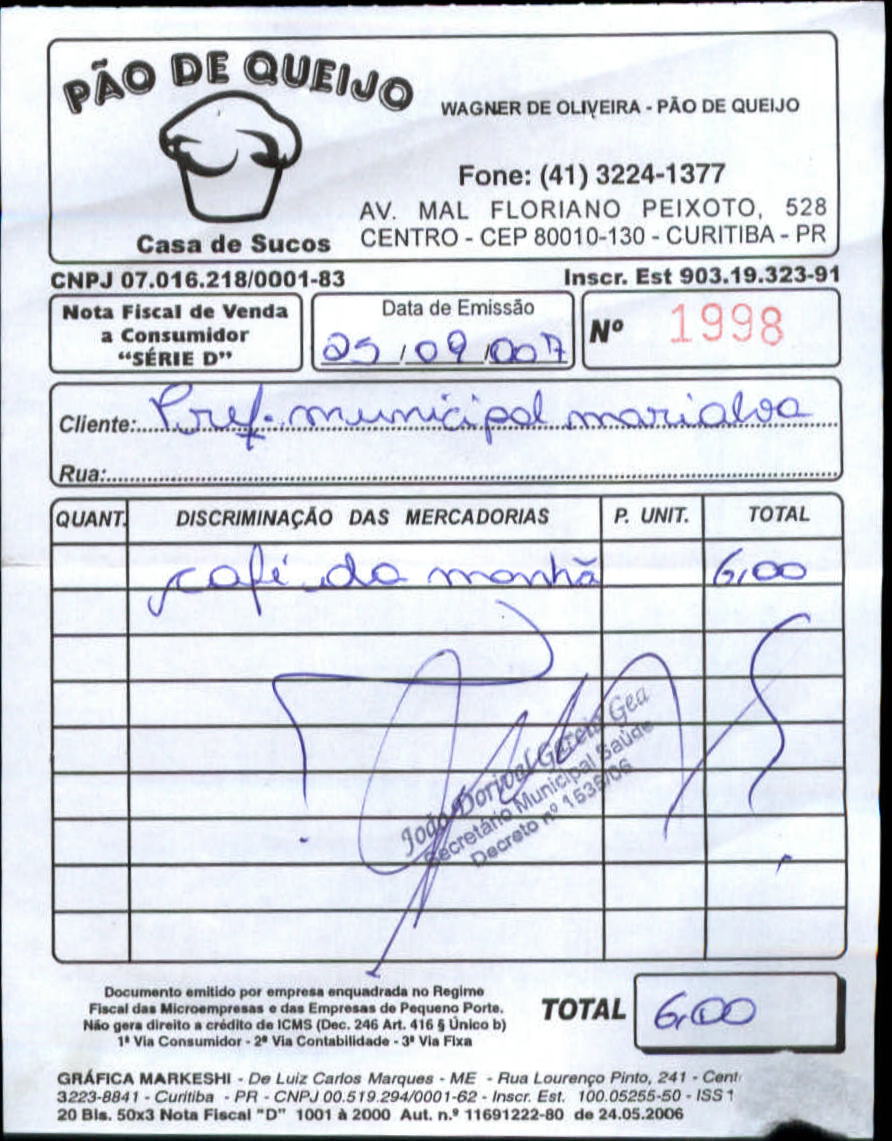 PÃO DE QUEIJO
Casa de Sucos
WAGNER DE OLIVEIRA - PÃO DE QUEIJO
Fone: (41) 3224-1377
AV. MAL FLORIANO PEIXOTO, 528
CENTRO - CEP 80010-130 - CURITIBA - PR
CNPJ 07.016.218/0001-83 Inscr. Est 903.19.323-91
Nota Fiscal de Venda
a Consumidor
"SÉRIE D"
Data de Emissão
25/09/007
Nº 1998
Cliente: Pref. municipal marialva
Rua:
QUANT. DISCRIMINAÇÃO DAS MERCADORIAS P. UNIT. TOTAL
café da manhã 6,00
João Dorival Gea
Secretário Municipal Saúde
Decreto nº 1535/06
Documento emitido por empresa enquadrada no Regime
Fiscal das Microempresas e das Empresas de Pequeno Porte.
Não gera direito a crédito de ICMS (Dec. 246 Art. 416 § Único b)
1ª Via Consumidor - 2ª Via Contabilidade - 3ª Via Fixa
TOTAL 6,00
GRÁFICA MARKESHI - De Luiz Carlos Marques - ME - Rua Lourenço Pinto, 241 - Cent
3223-8841 - Curitiba - PR - CNPJ 00.519.294/0001-62 - Inscr. Est. 100.05255-50 - ISS 1
20 Bls. 50x3 Nota Fiscal "D" 1001 à 2000 Aut. n.º 11691222-80 de 24.05.2006